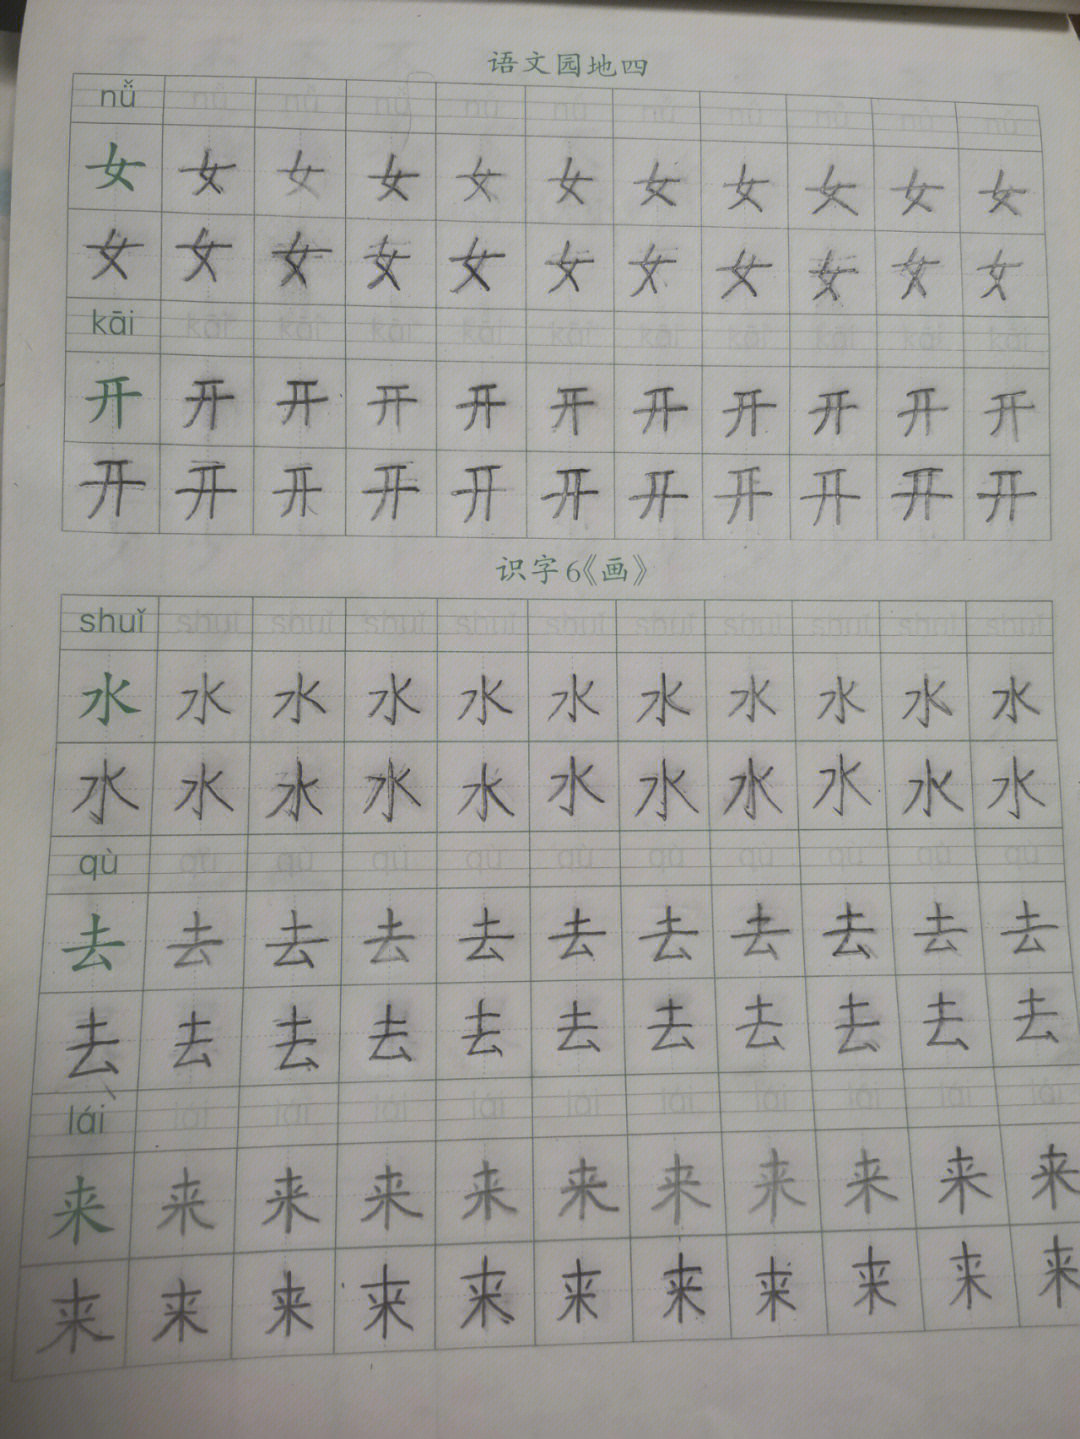 语文园地四
nǚ nǚ nǚ nǚ nǚ nǚ nǚ nǚ nǚ nǚ nǚ
女 女 女 女 女 女 女 女 女 女 女
女 女 女 女 女 女 女 女 女 女 女
kāi kāi kāi kāi kāi kāi kāi kāi kāi kāi kāi
开 开 开 开 开 开 开 开 开 开 开
开 开 开 开 开 开 开 开 开 开 开
识字6《画》
shuǐ shuǐ shuǐ shuǐ shuǐ shuǐ shuǐ shuǐ shuǐ shuǐ shuǐ
水 水 水 水 水 水 水 水 水 水 水
水 水 水 水 水 水 水 水 水 水 水
qù qù qù qù qù qù qù qù qù qù qù
去 去 去 去 去 去 去 去 去 去 去
去 去 去 去 去 去 去 去 去 去 去
lái lái lái lái lái lái lái lái lái lái lái
来 来 来 来 来 来 来 来 来 来 来
来 来 来 来 来 来 来 来 来 来 来